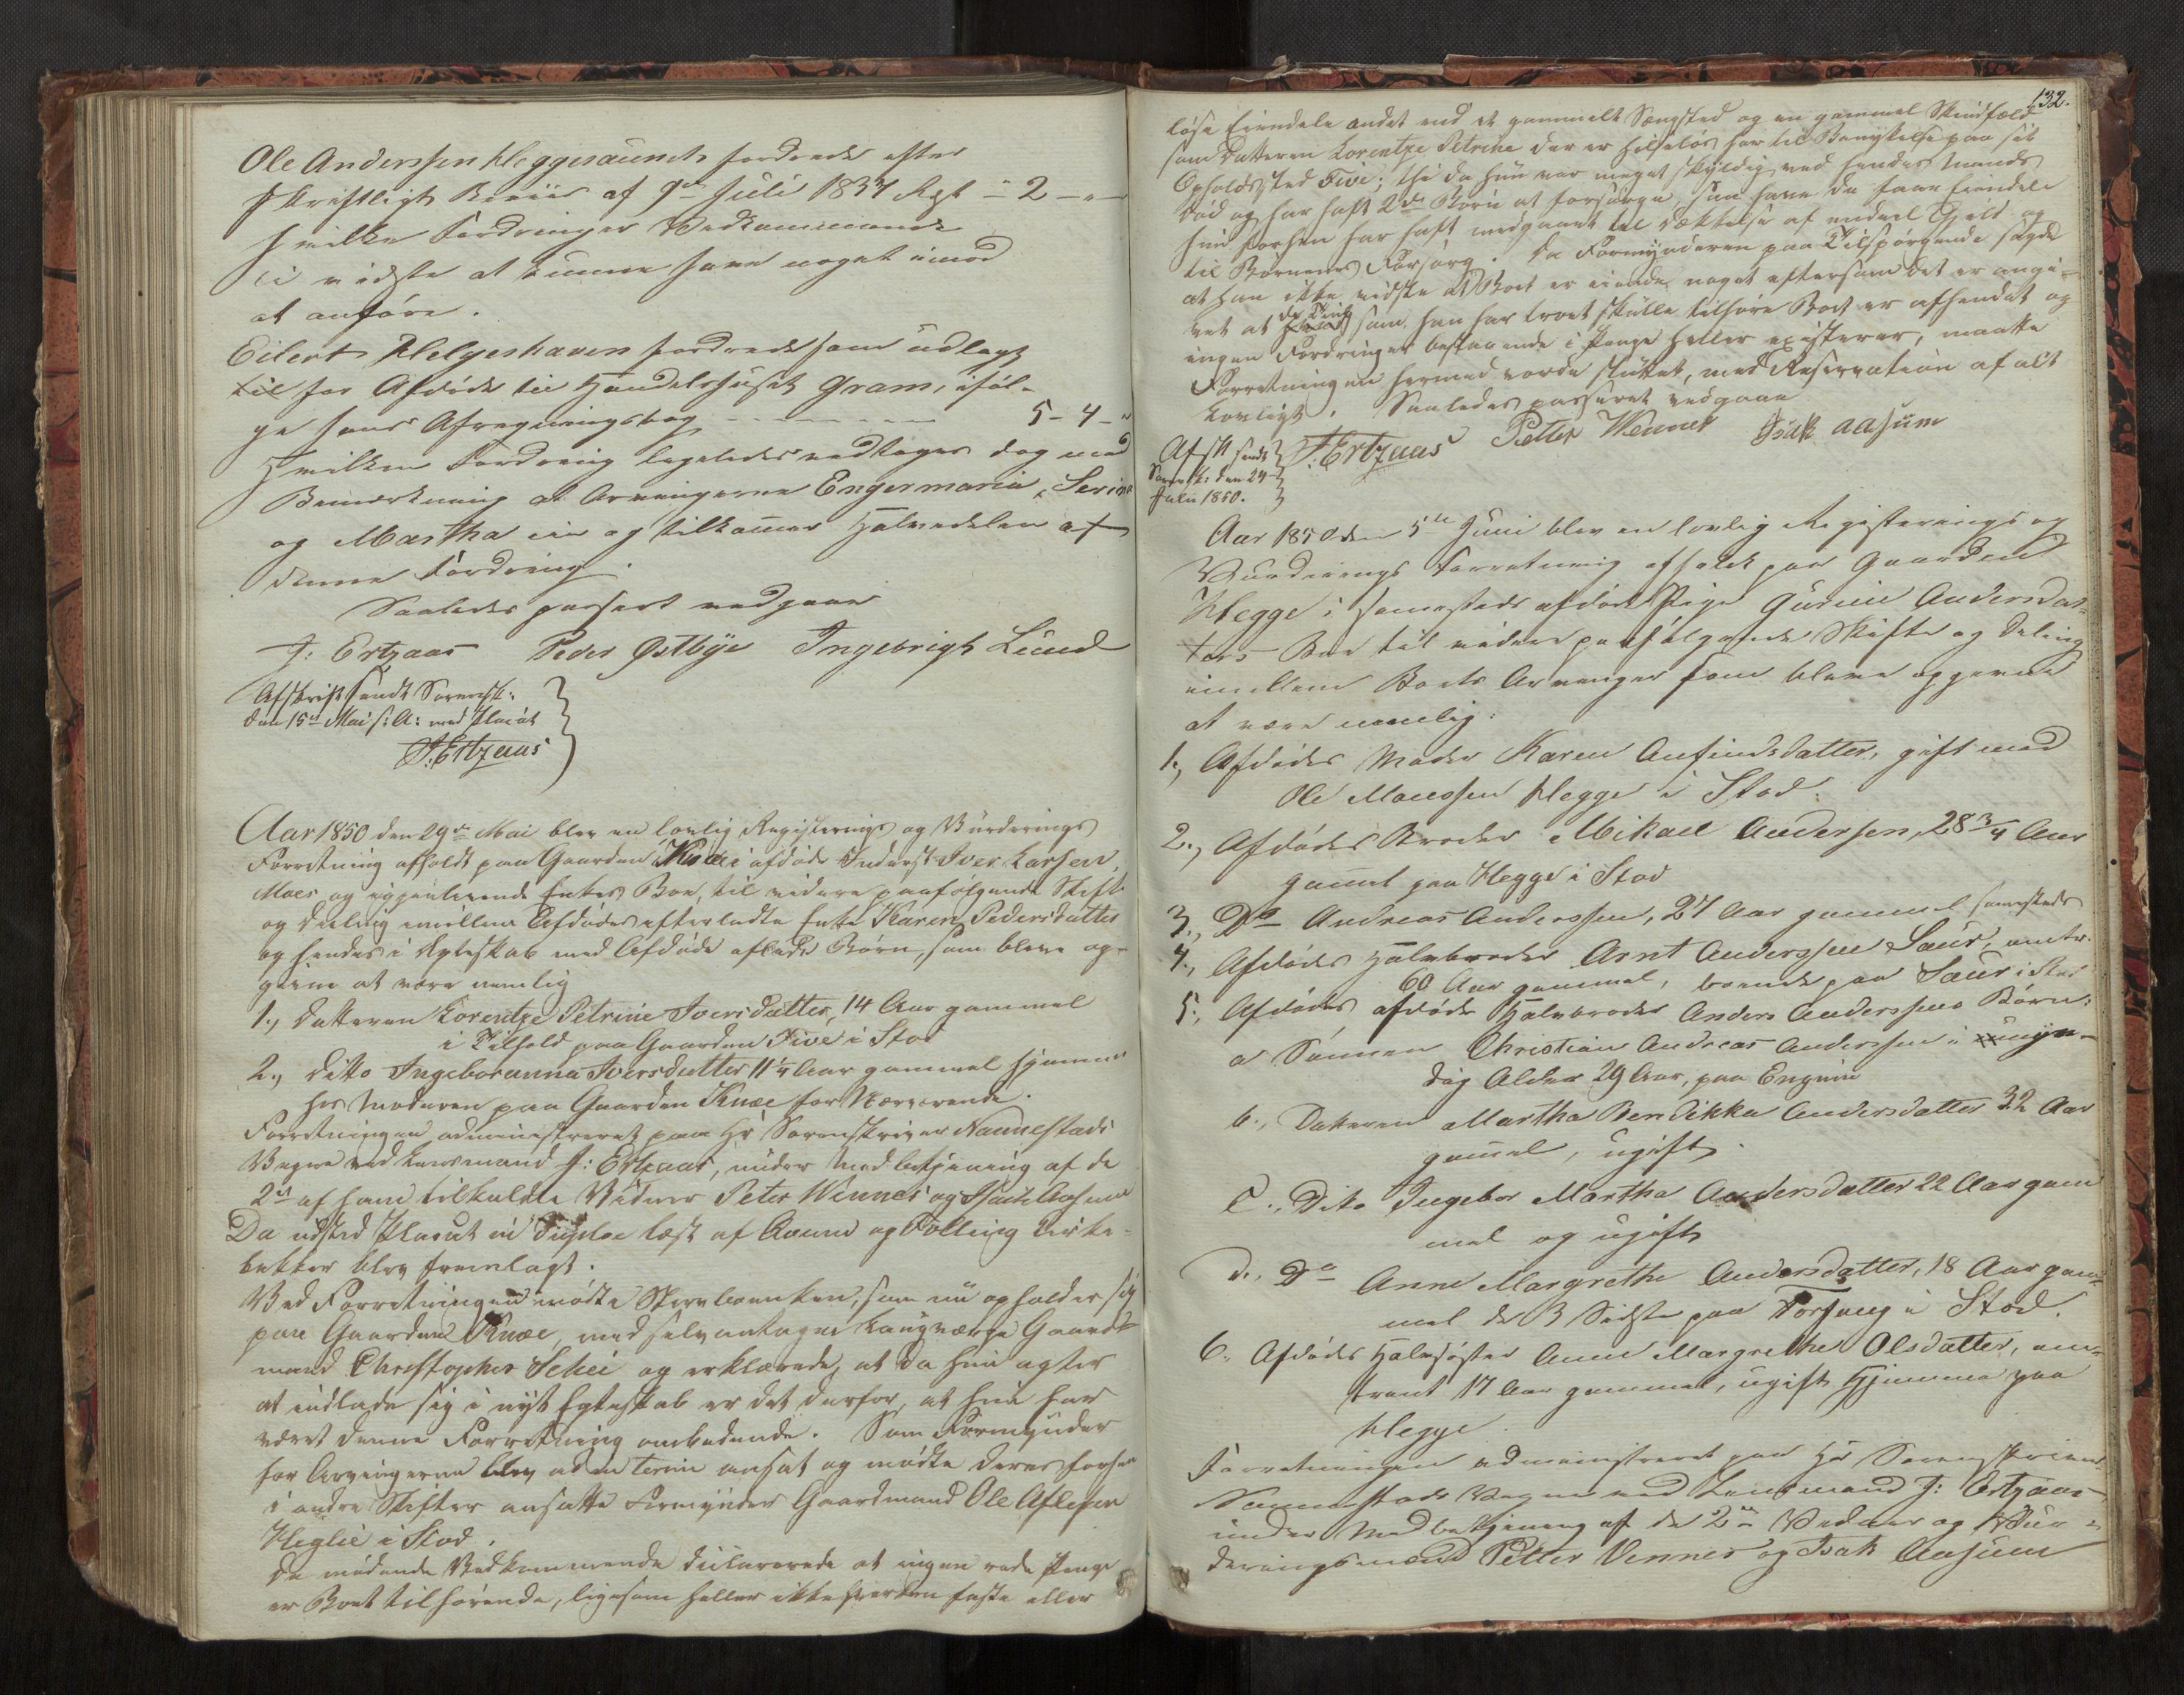 Ole Anderssen Heggesaunet fordrede efter
skriftligt Beviis af 9de Juli 1837 Rest - 2 - -
hvilke Fordringer Vedkommende
ei vidste at kunne have noget imod
at anføre.
Eilert Helgeshaven fordrede som udlagt
til for Afdøde til Handelshuset Gram, iføl-
ge hans Afregningsbog - - - - - 5 - 4 - "
Hvilken Fordring ligeledes vedtages dog med
Bemærkning at Arvingerne Engermaria, Serine
og Martha ene og tilkommer Halvedelen af
denne Fordring.
Saaledes passert vedgaaer
J: Ertzaas Peder Østbye Ingebrigt Lund
Afskrift sendt Sorensk:
den 15de Mai s: A: med Placat
J. Ertzaas
Aar 1850 den 29de Mai blev en lovlig Registerings og Vurderings
Forretning afholdt paa Gaarden Knæe i afdøde Inderst Iver Larsen
Moes og igjenlevende Enkes Boe, til videre paafølgende Skifte
og Deeling imellem Afdødes efterladte Enke Karen Pedersdatter
og hendes i Egteskab med Afdøde aflede Børn, som bleve op-
givne at være nemlig
1., Datteren Lorentze Petrine Iversdatter, 14 Aar gammel
i Tilhold paa Gaarden Five i Stod
2., Ditto Ingeboranna Iversdatter 11 1/4 Aar gammel hjemme
hos Moderen paa Gaarden Knæe for Nærværende.
Forretningen administreret paa Hr Sorenskriver Nannestads
Vegne ved Lensmand J: Ertzaas, under Medbetjening af de
2de af ham tilkaldte Vidner Peter Wennes og Isach Aasum
Da udsted Placat in Duplo læst af Qvam og Følling Kirke-
bakker blev fremlagt.
Ved Forretningen mødte Stervboenken, som nu opholder sig
paa Gaarden Knæe, med selvantagne Laugværge Gaard-
mand Christopher Schei og erklærede, at da hun agter
at indlade sig i nyt Egteskab er det derfor, at hun har
været denne Forretning ombedende. Som Formynder
for Arvingerne blev ad interim ansat og mødte deres forhen
i andre Skifter ansatte Formynder Gaardmand Ole Aflesen
Heglie i Stod.
De mødende Vedkommende declarerede at ingen rede Penge
er Boet tilhørende, ligesom heller ikke hverken faste eller
132.
løse Eiendele andet end et gammelt Sængsted og en gammel Skindfæld
som Datteren Lorentze Petrine der er helseløs har til Benyttelse paa sit
Opholdssted Five; thi da hun var meget skyldig ved hendes Mands
Død og har haft 2de Børn at forsørge, saa have de faae Eiendele
hun forhen har haft medgaaet til Dækkelse af endeel Gjeld og
til Børnenes Forsørg. Da Formynderen paa Tilspørgende sagde
at han ikke vidste at Boet er eiende noget eftersom det er angi-
vet at de Ting som han har troet skulle tilhøre Boet er afhendet og
ingen Fordringer bestaaende i Penge heller existerer, maatte
Forretningen hermed vorde sluttet, med Reservation af alt
Lovligt. Saaledes passeret vedgaaer
J: Ertzaas Petter Wennes Isak Aasum
Afsk sendt
Sorensk: den 24
Juli 1850.
Aar 1850 den 5te Juni blev en lovlig Registerings og
Vurderings Forretning afholdt paa Gaarden
Hegge i sammesteds afdøde Pige Gurine Andersdat-
ters Boe til videre paafølgende Skifte og Deling
imellem Boets Arvinger som bleve opgivne
at være nemlig:
1., Afdødes Moder Karen Anfindsdatter, gift med
Ole Monssen Hegge i Stod.
2., Afdødes Broder Mikael Andersen, 28 3/4 Aar
gammel paa Hegge i Stod
3., Do Andreas Anderssen, 27 Aar gammel sammesteds
4., Afdødes Halvbroder Arnt Anderssen Saur, omtr.
60 Aar gammel, boende paa Saur i Stod
5., Afdødes afdøde Halvbroder Anders Anderssens Børn:
a Sønnen Christian Andreas Anderssen i umyn-
dig Alder 29 Aar, paa Engum
b., Datteren Martha Bendikka Andersdatter 32 Aar
gammel, ugift.
C., Dito Ingebor Martha Andersdatter 22 Aar gam
mel og ugift
d., Do Anne Margrethe Andersdatter, 18 Aar gam-
mel de 3 Sidste paa Forsaug i Stod.
6. Afdødes Halvsøster Anne Margrethe Olsdatter, om-
trent 17 Aar gammel, ugift hjemme paa
Hegge.
Forretningen administreret paa Hr Sorenskriver
Nannestads Vegne ved Lensmand J: Ertzaas
under Medbetjening af de 2de Vidner og Vur-
deringsmænd Petter Vennes og Isak Aasum